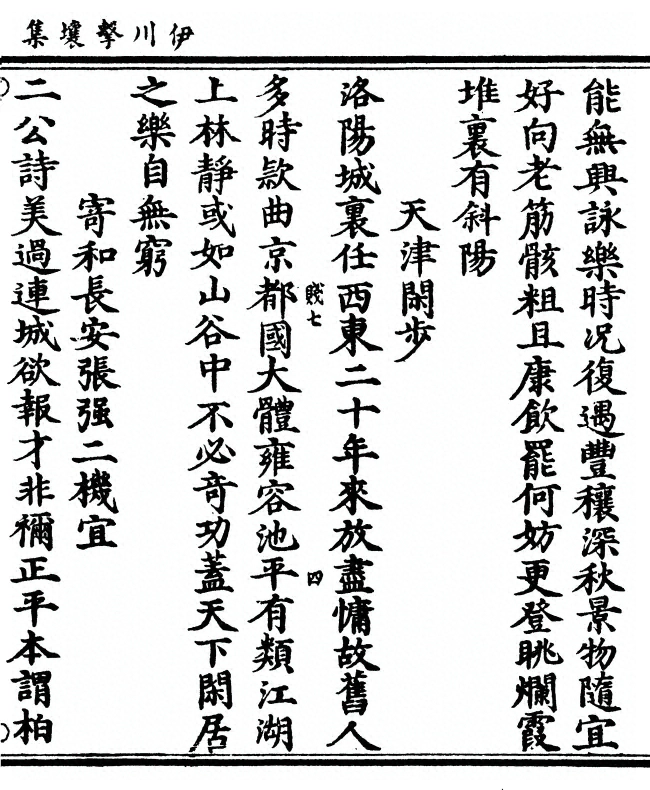 伊川擊壤集
能無興詠樂時況復遇豐穰深秋景物隨宜
好向老筋骸粗且康飲罷何妨更登眺爛霞
堆裏有斜陽
天津閑步
洛陽城裏任西東二十年來放盡慵故舊人
多時款曲京都國大體雍容池平有類江湖
上林靜或如山谷中不必奇功蓋天下閑居
之樂自無窮
寄和長安張强二機宜
二公詩美過連城欲報才非禰正平本謂柏
賤七
四